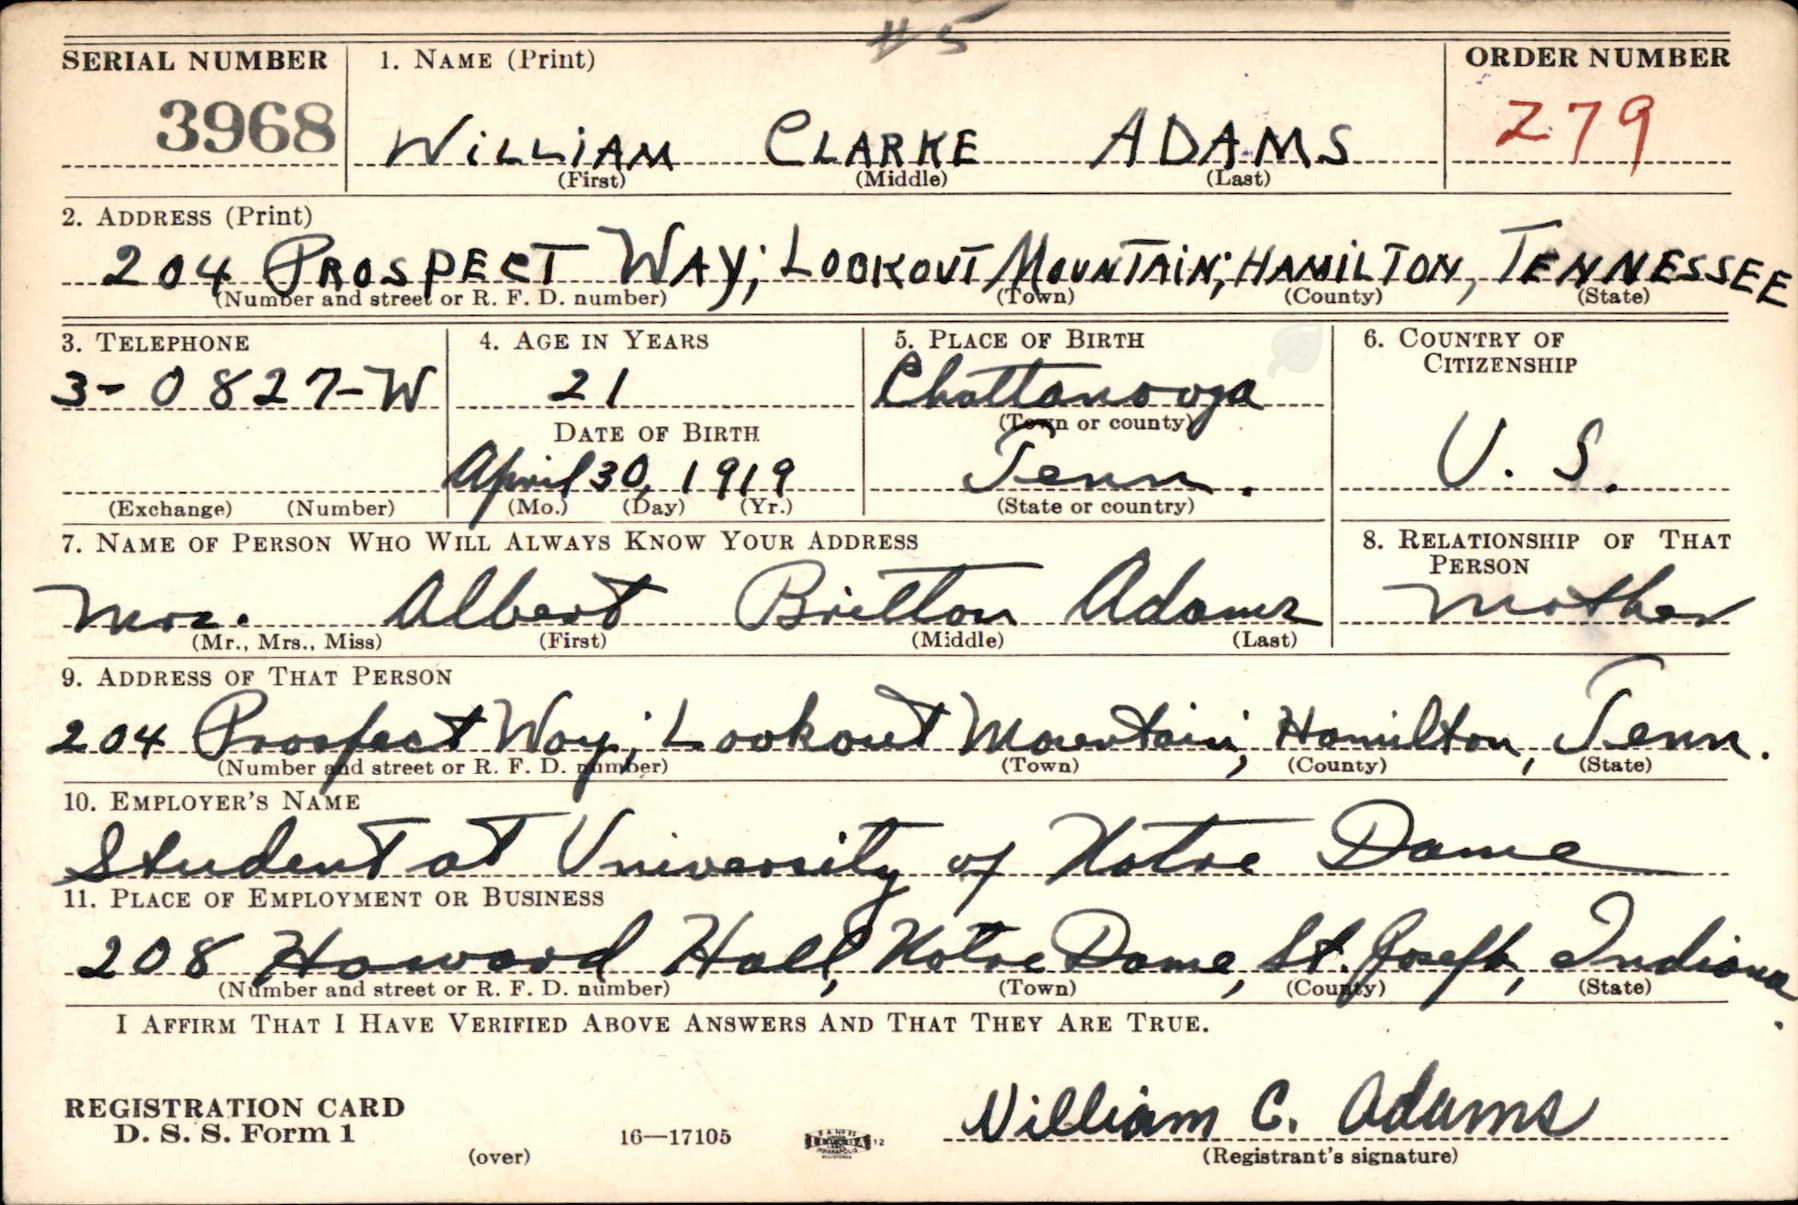 #5
SERIAL NUMBER 1. NAME (Print) ORDER NUMBER
3968 WILLIAM CLARKE ADAMS 279
(First) (Middle) (Last)
2. ADDRESS (Print)
204 PROSPECT WAY; LOOKOUT MOUNTAIN; HAMILTON, TENNESSEE
(Number and street or R. F. D. number) (Town) (County) (State)
3. TELEPHONE 4. AGE IN YEARS 5. PLACE OF BIRTH 6. COUNTRY OF
CITIZENSHIP
3-0827-W 21 Chattanooga
(Town or county)
DATE OF BIRTH
April 30, 1919 Tenn. U. S.
(Exchange) (Number) (Mo.) (Day) (Yr.) (State or country)
7. NAME OF PERSON WHO WILL ALWAYS KNOW YOUR ADDRESS 8. RELATIONSHIP OF THAT
PERSON
Mrs. Albert Britton Adams Mother
(Mr., Mrs., Miss) (First) (Middle) (Last)
9. ADDRESS OF THAT PERSON
204 Prospect Way; Lookout Mountain; Hamilton, Tenn.
(Number and street or R. F. D. number) (Town) (County) (State)
10. EMPLOYER'S NAME
Student at University of Notre Dame
11. PLACE OF EMPLOYMENT OR BUSINESS
208 Howard Hall, Notre Dame, St. Joseph, Indiana.
(Number and street or R. F. D. number) (Town) (County) (State)
I AFFIRM THAT I HAVE VERIFIED ABOVE ANSWERS AND THAT THEY ARE TRUE.
William C. Adams
REGISTRATION CARD
D. S. S. Form 1 16—17105 12
(over) (Registrant's signature)